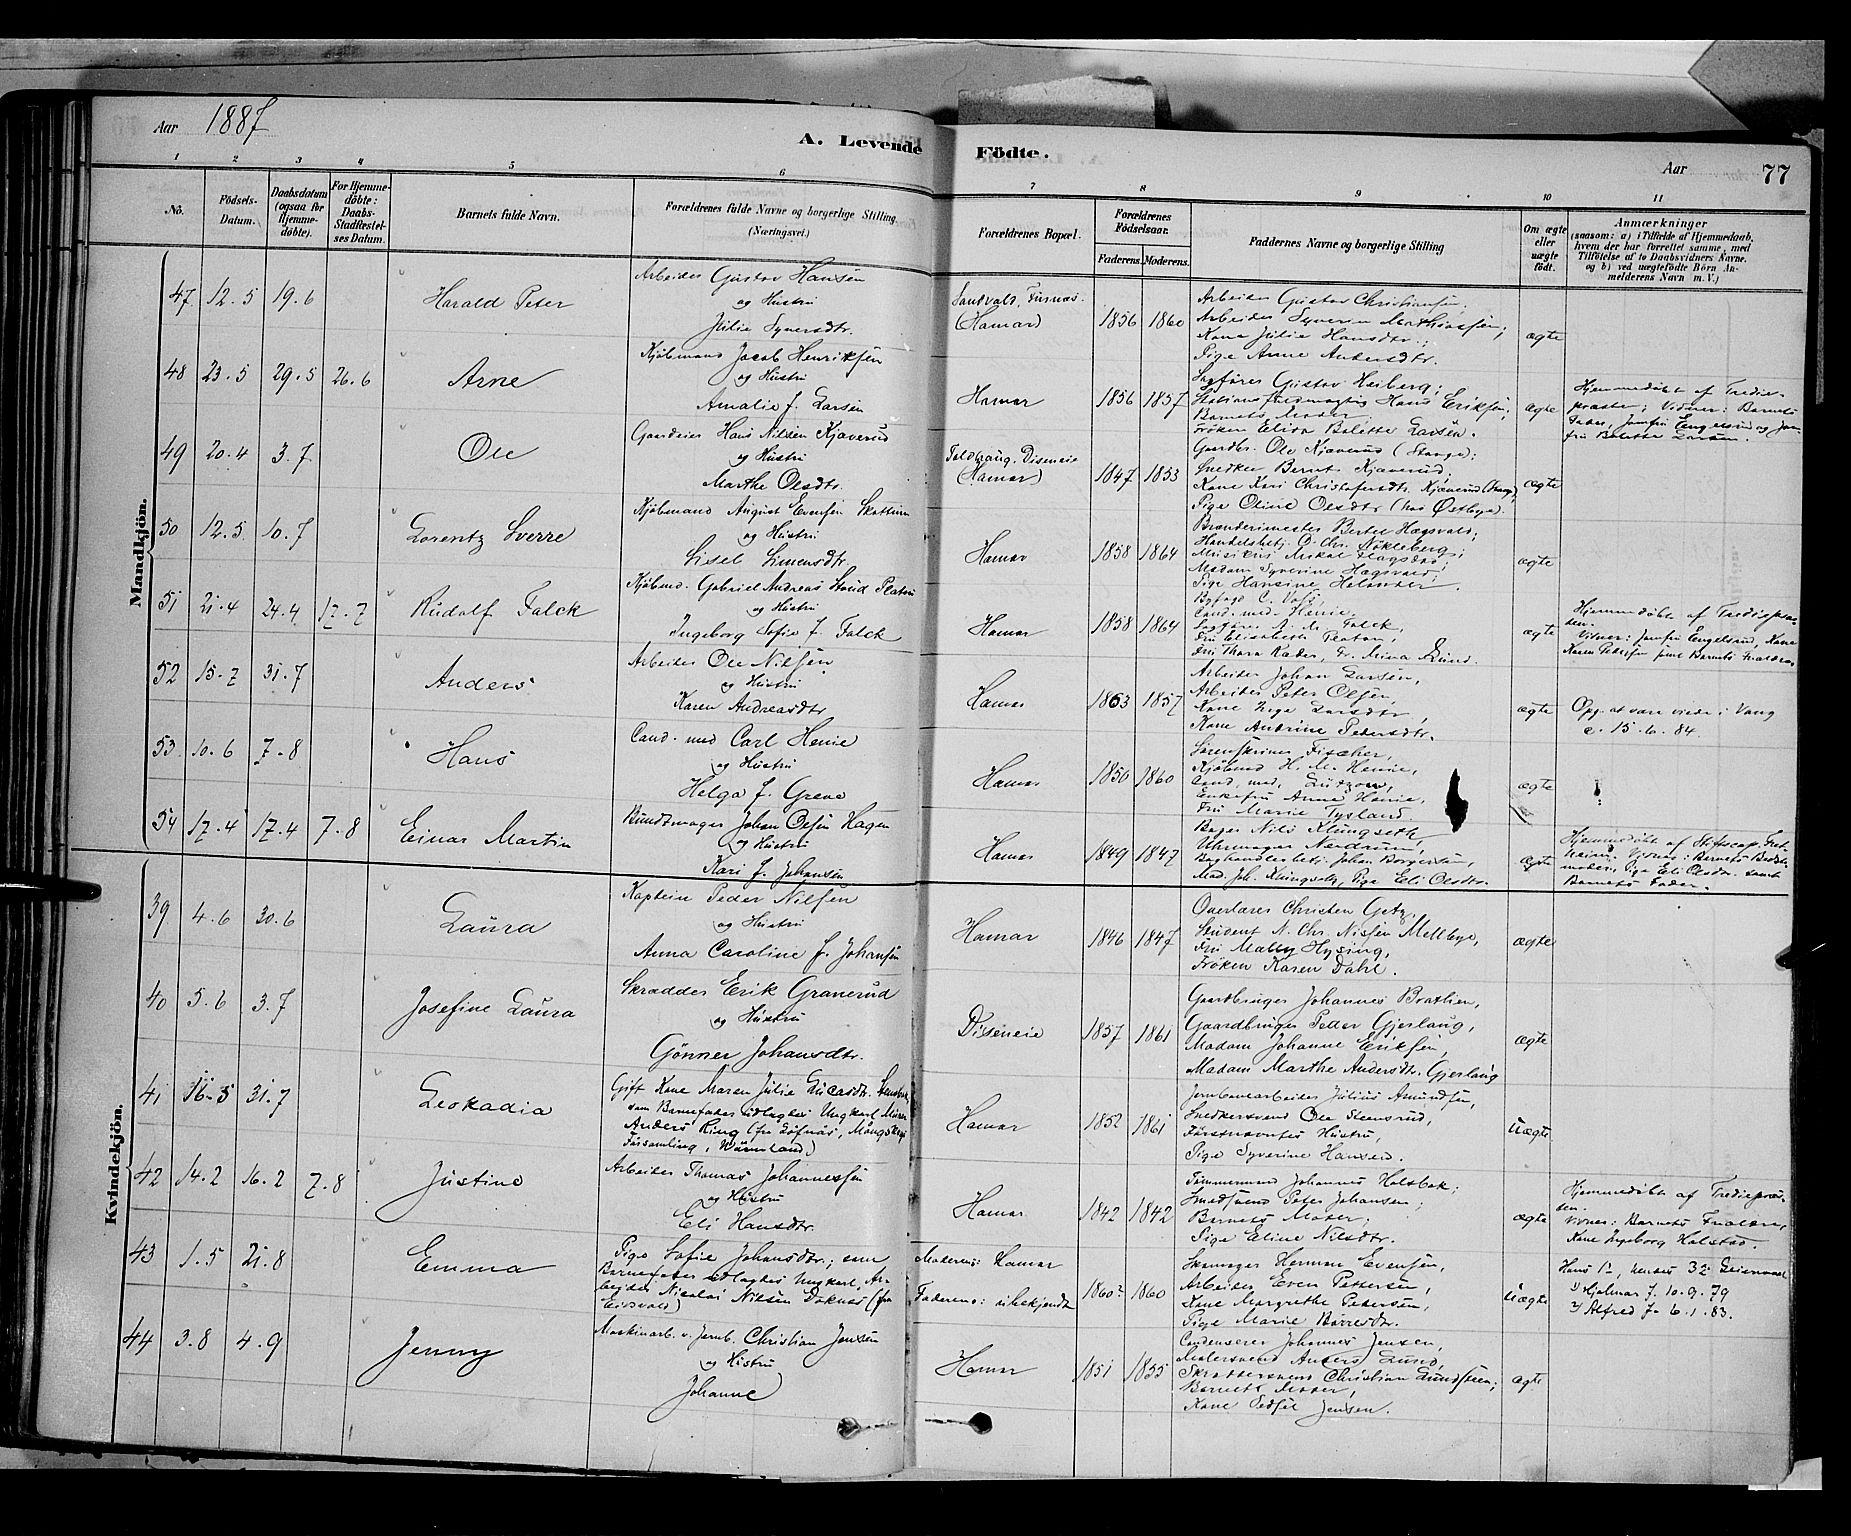 Aar 1887
A. Levende Födte.
Aar 77
1 2 3 4 5 6 7 8 9 10 11
No.
Födsels-Datum.
Daabsdatum (ogsaa for Hjemme-döbte).
For Hjemme-döbte: Daabs-Stadfæstel-ses Datum.
Barnets fulde Navn.
Forældrenes fulde Navne og borgerlige Stilling.
(Næringsvei.)
Forældrenes Bopæl.
Forældrenes Födselsaar.
Faderens. Moderens.
Faddernes Navne og borgerlige Stilling
Om ægte eller uægte födt.
Anmærkninger
(saasom: a) i Tilfælde af Hjemmedaab,
hvem der har forrettet samme, med
Tilföielse af to Daabsvidners Navne.
og b) ved uægtefödte Börn An-
melderens Navn m. V.)
Mandkjön.
47 12.5 19.6 Harald Peter
Arbeider Gustav Hansen
og Hustru
Julie Syversdtr.
Sandvold, Furnæs.
(Hamar) 1856 1860
Arbeider Gustav Christiansen,
Arbeider Syverin Mathiassen;
Kone Julie Hansdtr.;
Pige Anne Andersdtr.
ægte
48 23.5 29.5 26.6 Arne
Kjøbmand Jacob Henriksen
og Hustru
Amalie f. Larsen
Hamar 1856 1857
Sagfører Gustav Heiberg;
Stationsfuldmægtig Hans Eriksen;
Barnets Moder
Frøken Elisa Bolette Larsen.
ægte
Hjemmedøbt af Tredie-
præsten; Vidner: Barnets
Fader, Jomfru Engelsrud og Jom-
fru Bolette Larsen.
49 20.4 3.7 Ole
Gaardeier Hans Nilsen Kjæverud
og Hustru
Marthe Olsdtr.
Toldhaug, Diseneie
(Hamar) 1847 1853
Gaardbr. Ole Kjæverud (Stange);
Snedker Bernt Kjæverud;
Kone Kari Christofersdtr. Kjæverud (Stange)
Pige Oline Olsdtr (hos Østbye).
ægte
50 12.5 10.7 Lorentz Sverre
Kjøbmand August Evensen Skattum
og Hustru
Lisel Simensdtr
Hamar 1858 1864
Brænderimester Bertel Hagsvold;
Handelsbetj. O. Chr. Nøkleberg;
Madam Syverine Hagsvold;
Pige Hansine Helander.
ægte
51 21.4 24.4 17.7 Rudolf Falck
Kjøbmd. Gabriel Andreas Stoud Platou
og Hustru
Ingeborg Sofie f. Falck
Hamar 1858 1864
Byfogd C. Voss.
Cand. med. Henie,
Sagfører A. M. Falck,
Fru Elisabeth Platou,
Fru Thora Ræder, Fr. Mina Lund.
ægte
Hjemmedøbt af Trediepræ-
sten.
Vidner: Jomfru Engelsrud, Kone
Karen Pedersen samt Barnets Forældre
52 15.7 31.7 Anders
Arbeider Ole Nilsen
og Hustru
Karen Andreasdtr
Hamar 1863 1857
Arbeider Johan Larsen,
Arbeider Peter Olsen,
Kone Inga Larsdtr,
Kone Andrine Pedersdtr.
ægte
Opg. at være viede i Vang
c. 15.6.84.
53 10.6 7.8 Hans
Cand. med Carl Henie
og Hustru
Helga f. Greve
Hamar 1850 1860
Sorenskriver Fischer,
Kjøbmd H. M. Henie,
Cand. med. Lützow,
Enkefru Anne Henie,
Fru Marie Tysland.
ægte
54 17.4 17.4 7.8 Einar Martin
Bundtmager Johan Olsen Hagen
og Hustru
Kari f. Johansen
Hamar 1849 1847
Bager Nils Klungseth
Uhrmager Nerdrum,
Boghandlerbetj. Johan Borgersen,
Mad. Joh. Klungseth, Pige Eli Olsdtr.
ægte
Hjemmedøbt af Stiftscap. Fret-
heim. Vidner: Barnets Bedste-
moder, Pige Eli Olsdtr. samt
Barnets Fader.
Kvindekjön.
39 4.6 30.6 Laura
Kaptein Peder Nilsen
og Hustru
Anna Caroline f. Johansen
Hamar 1846 1847
Overlærer Christen Getz,
Student N. Chr. Nissen Mellbye,
Fru Mally Hysing,
Frøken Karen Dahl.
ægte
40 5.6 3.7 Josefine Laura
Skrædder Erik Granerud
og Hustru
Gönner Johansdtr.
Diseneie 1857 1861
Gaardbruger Johannes Brathen,
Gaardbruger Petter Gjerlaug,
Madam Johanne Eriksen,
Madam Marthe Andersdtr. Gjerlaug
ægte
41 16.5 31.7 Leokadia
Gift Kone Maren Julie Lucasdtr.
som Barnefader udlagdes Ungkarl Murer
Anders Ring (fra Löfnäs, Mångskogs
Församling, Värmland)
Hamar 1852 1861
Jernbanearbeider Julius Amundsen,
Snedkersvend Ole Stensrud,
Førstnævntes Hustru,
Pige Syverine Hansen.
Uægte
42 14.2 16.2 7.8 Justine
Arbeider Thomas Johannessen
og Hustru
Eli Hansdtr.
Hamar 1842 1842
Tømmermand Johannes Holsbak;
Smedsvend Peter Johansen;
Barnets Moder;
Pige Eline Nilsdtr.
ægte
Hjemmedøbt af Trediepræ-
sten.
Vidner: Barnets Forældre,
Kone Ingeborg Holstad.
43 1.5 21.8 Emma
Pige Sofie Johansdtr; som
Barnefader udlagdes Ungkarl, Ar-
beider Nicolai Nilsen Doknes (fra
Eidsvold)
Moderens: Hamar
Faderens: ubekjendt 1860? 1860
Skomager Herman Evensen,
Arbeider Even Pettersen,
Kone Margrethe Petersen,
Pige Marie Børresdtr.
Uægte
Hans 1ste, hendes 3die Leiermaal
1) Hjalmar f. 10.9.79
2) Alfred f. 6.1.83.
44 3.8 4.9 Jenny
Maskinarb. v. Jernb. Christian Jensen
og Hustru
Johanne
Hamar 1851 1855
Condenserer Johannes Jensen,
Malersvend Anders Lund,
Skræddersvend Christian Gundersen;
Barnets Moder,
Kone Sedsel Jensen.
ægte